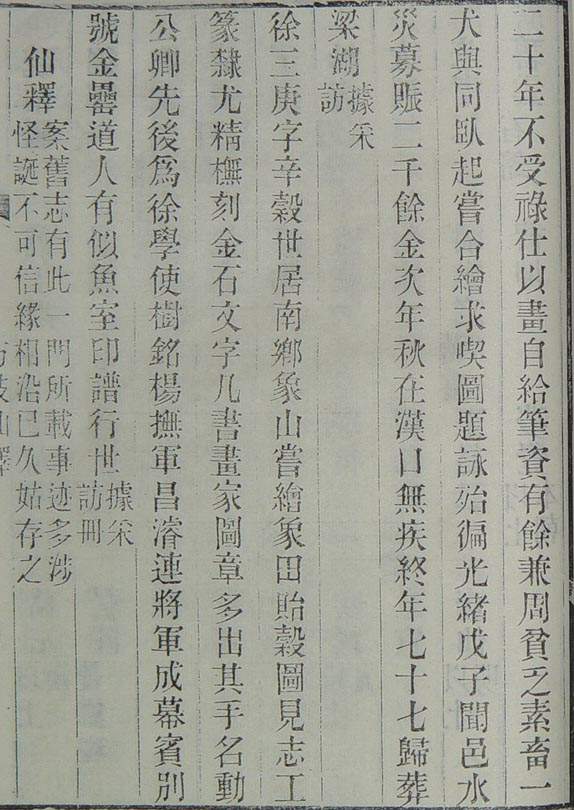 二十年不受祿仕以畫自給筆資有餘兼周貧乏素畜一
犬與同臥起嘗合繪求喫圖題詠殆徧光緒戊子聞邑水
災募賑二千餘金次年秋在漢口無疾終年七十七歸葬
梁湖據采
訪
徐三庚字辛穀世居南鄉象山嘗繪象田貽穀圖見志工
篆隸尤精橅刻金石文字凡書畫家圖章多出其手名動
公卿先後為徐學使樹銘楊撫軍昌濬連將軍成幕賓別
號金罍道人有似魚室印譜行世據采
訪冊
仙釋案舊志有此一門所載事迹多涉
怪誕不可信緣相沿已久姑存之